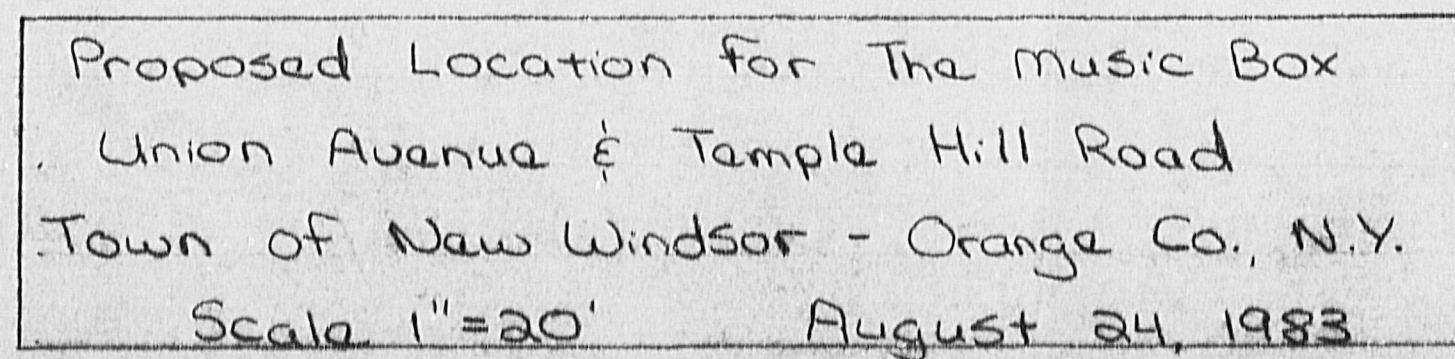 Proposed Location for The Music Box
Union Avenue & Temple Hill Road
Town of New Windsor - Orange Co., N.Y.
Scale 1"=20' August 24, 1983